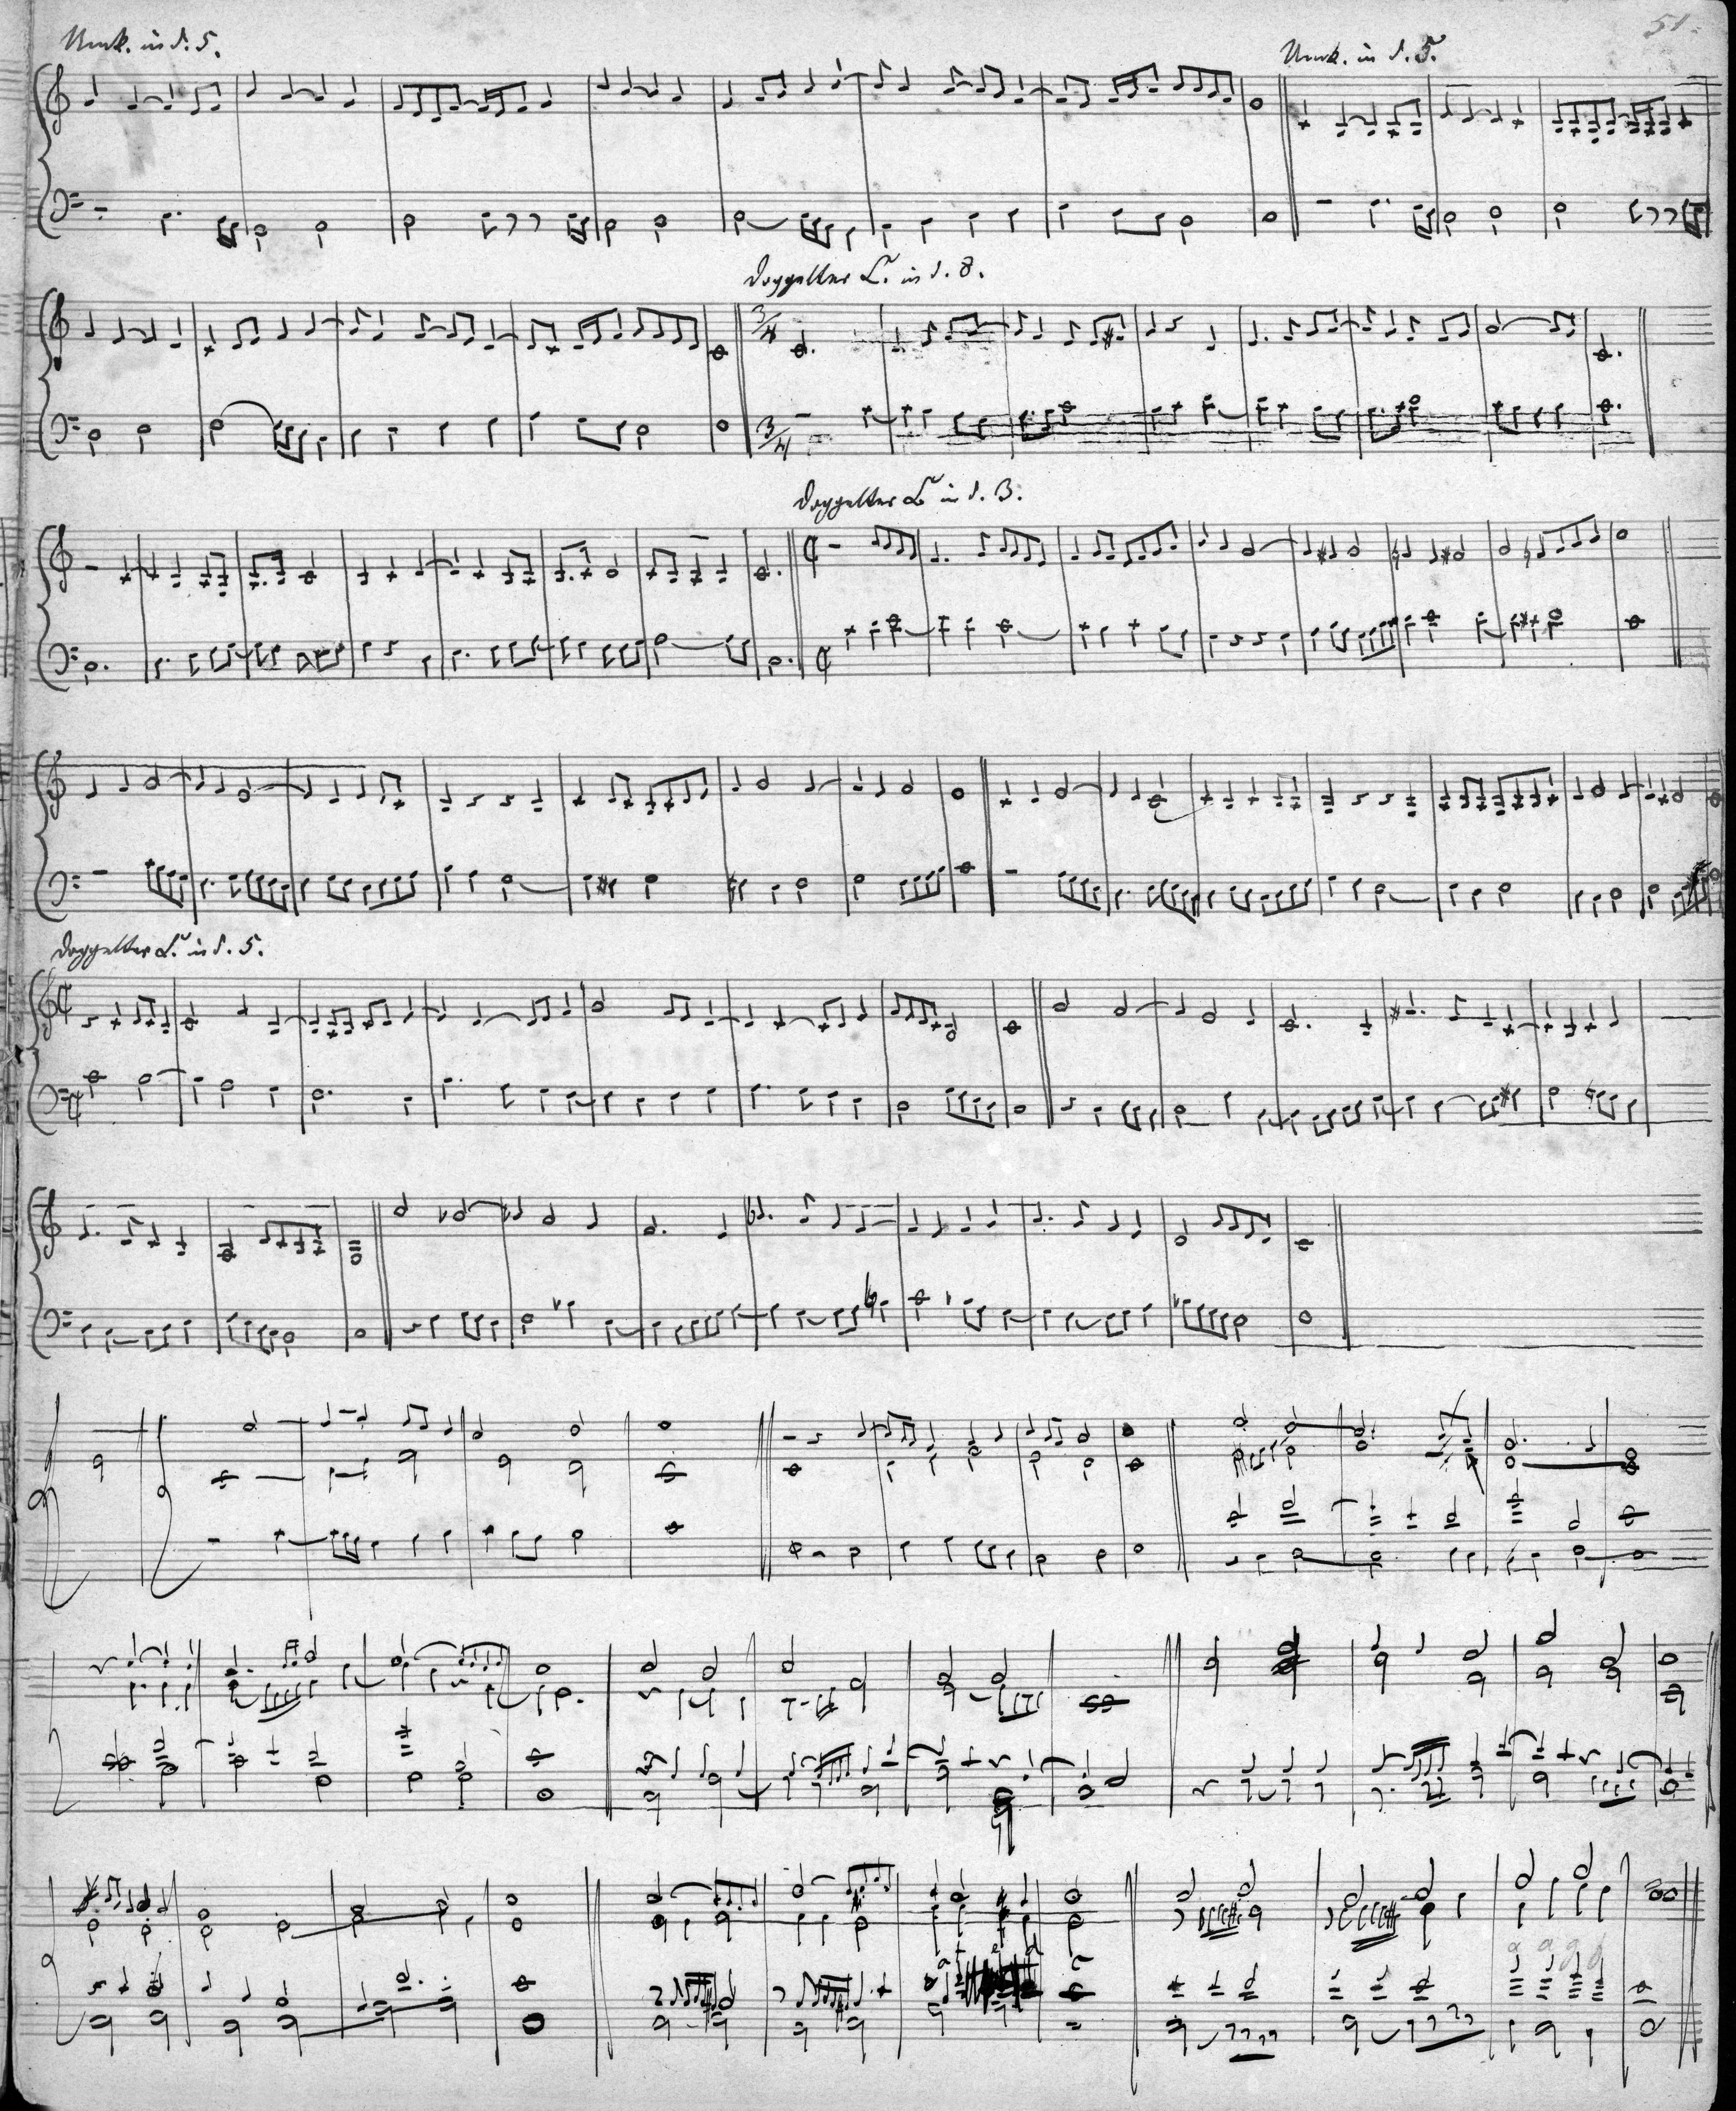 51.
Umk. in d. 5.
Umk. in d. 5.
Doppelter C. in d. 8.
3/4
3/4
Doppelter C in d. 3.
Doppelter C. in d. 5.
a a g f